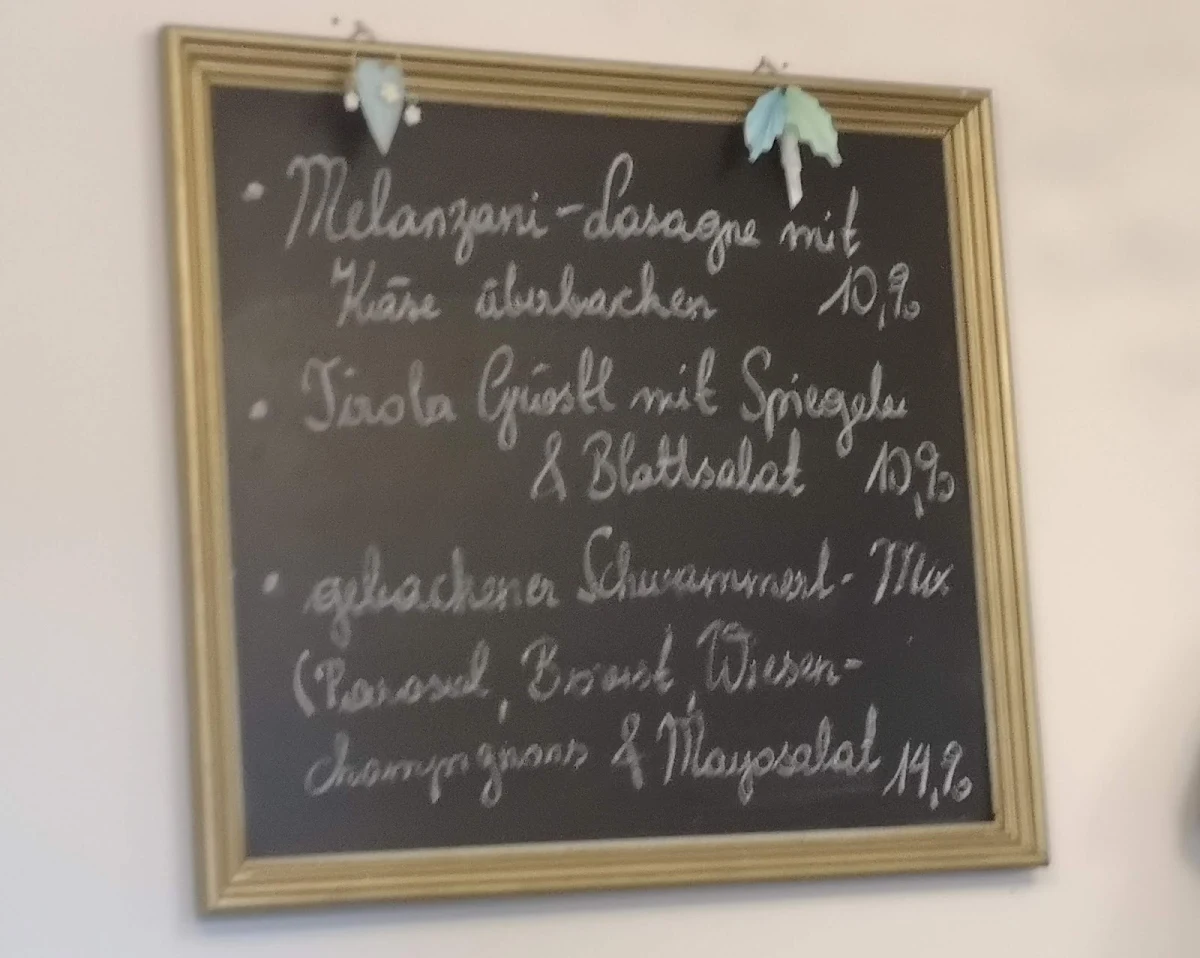 • Melanzani-Lasagne mit
Käse überbacken 10,90
• Tiroler Gröstl mit Spiegelei
& Blattsalat 10,90
• gebackener Schwammerl-Mix
(Parasol, Bovist, Wiesen-
champignons & Mayosalat 14,90